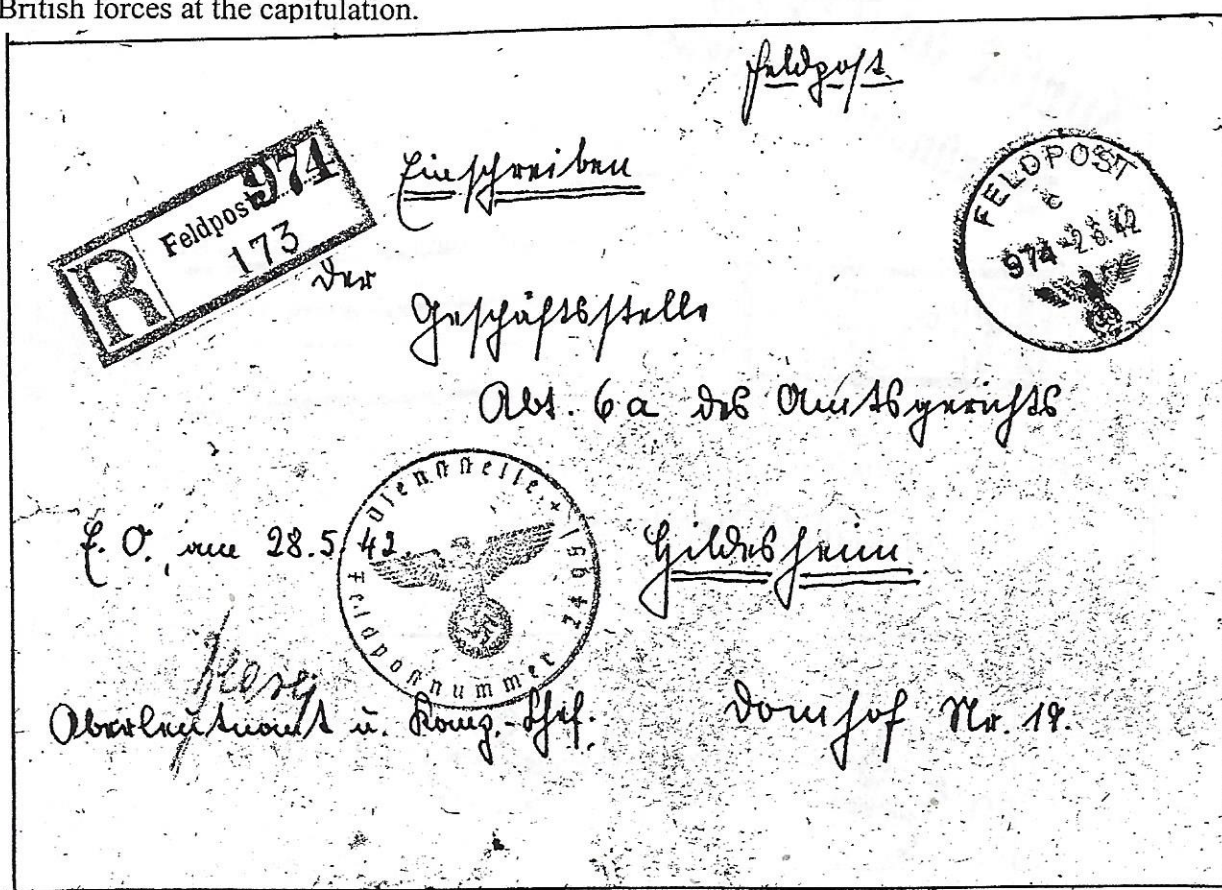 British forces at the capitulation.
Feldpost
Einschreiben
R
Feldpost 974
173
FELDPOST
c
974 -2.6.42
Der
Geschäftsstelle
Abt. 6a des Amtsgerichts
E. O., am 28.5.42
Dienststelle
Feldpostnummer
Hildesheim
Oberleutnant u. Komp.-Chef.
Domhof Nr. 19.